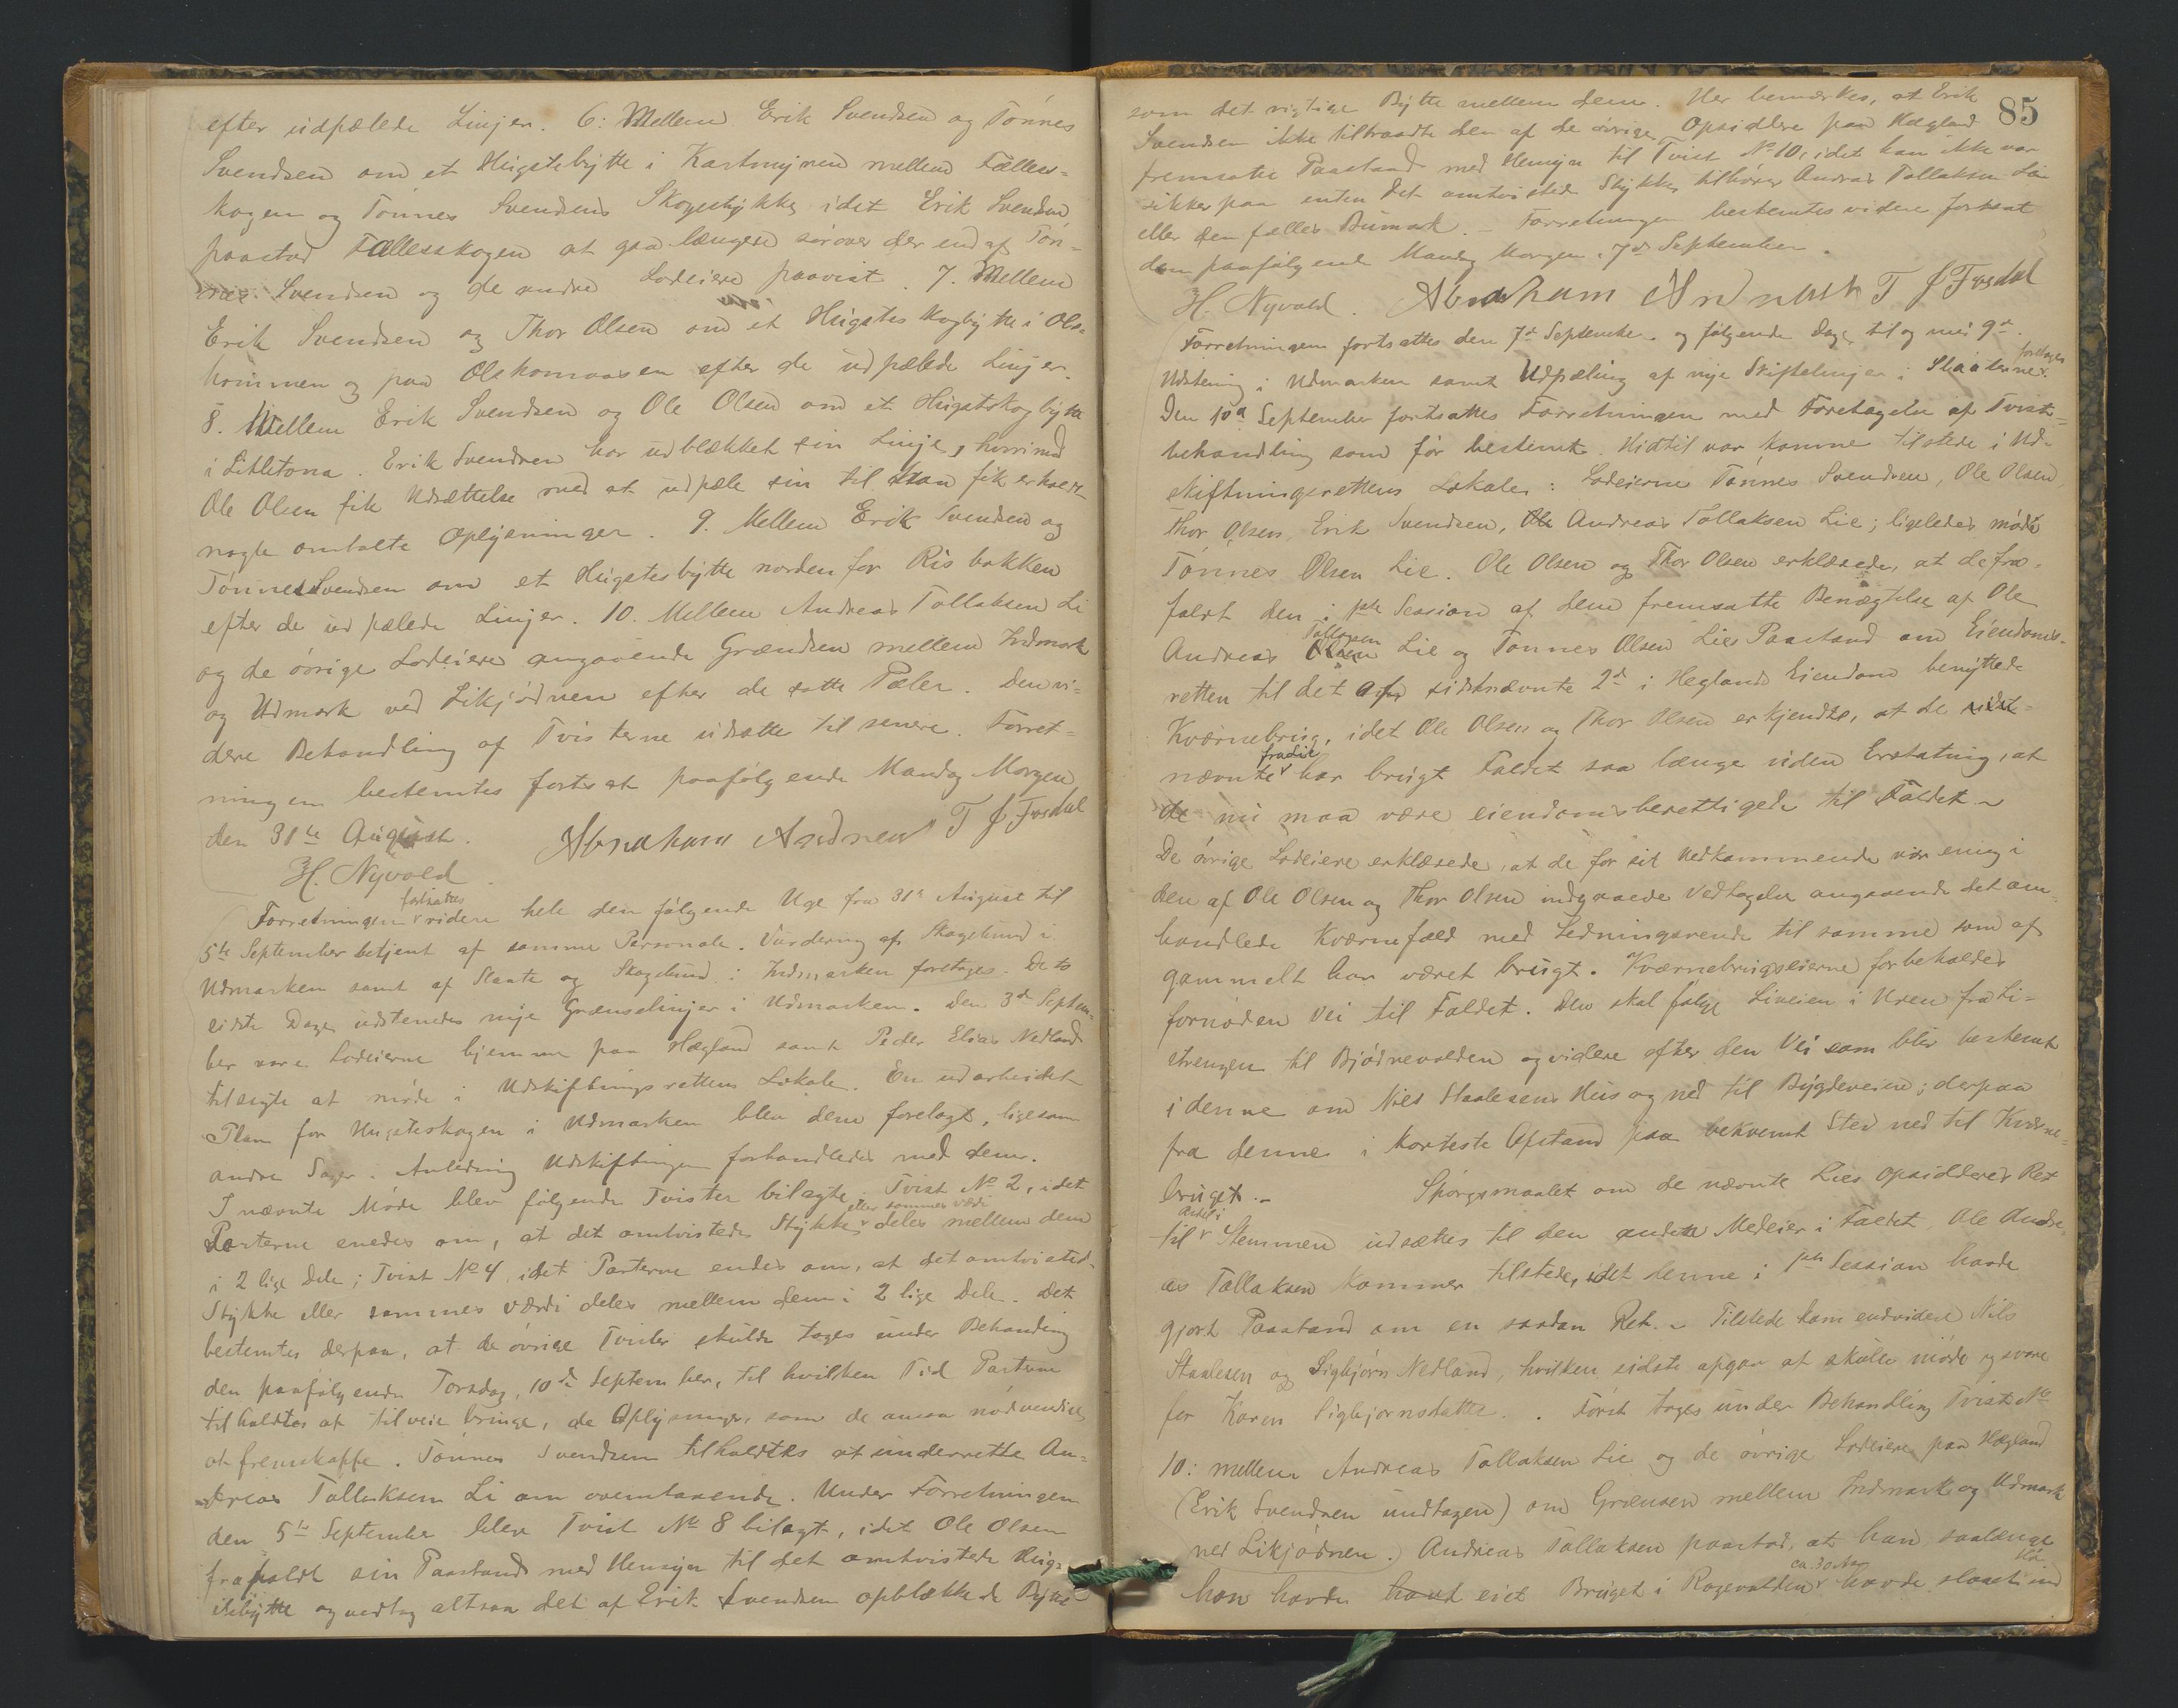 efter udpælede Linjer. 6: Mellem Erik Svendsen og Tönnes
Svendsen om et Hugstebytte i Kartmyren mellem Fælles-
kogen og Tönnes Svendsens Skogestykke, idet Erik Svendsen
paastod Fællesskogen at gaa længere sörover der end af Tön-
nes Svendsen og de andre Lodeiere paavist. 7. Mellem
Erik Svendsen og Thor Olsen om et Hugstes kogbytte i Ols-
kommen og paa Olskomaasen efter de udpælede Linjer.
8. Mellem Erik Svendsen og Ole Olsen om et Hugstskogbytte
i Litletona. Erik Svendsen har udblækket sin Linje, hvorimod
Ole Olsen fik Udsættelse med at udpæle sin til han fik erhvervet
nogle omtalte Oplysninger. 9. Mellem Erik Svendsen og
Tönnes Svendsen om et Hugstesbytte norden for Ris bakken
efter de udpælede Linjer. 10. Mellem Andreas Tollaksen Li
og de övrige Lodeiere angaaende Grændsen mellem Indmark
og Udmark ved Likjödnen efter de satte Pæler. Den vi-
dere Behandling af Tvisterne udsatte til senere. Forret-
ningen bestemtes fortsat paafölgende Mandag Morgen
den 31te August.
H. Nyvold Abraham Andreas T J Fosdal
Forretningen fortsattes videre hele den fölgende Uge fra 31te August til
5te September betjent af samme Personale. Vurdering af Skogebund i
Udmarken samt af Slaatte og Skogebund i Indmarken foretages. De to
sidste Dage udstenedes nye Grænselinjer i Udmarken. Den 3de Septem-
ber vare Lodeierne hjemme paa Hægland samt Peder Elias Nedland
tilsagte at möde i Udskiftningsrettens Lokale. En udarbeidet
Plan for Hugsteskogen i Udmarken blev dem forelagt, ligesom
andre Sager i Anledning Udskiftningen forhandledes med dem.
I nævnte Möde blev fölgende Tvister bilagte: Tvist No 2, idet
Parterne enedes om, at det omtvistede Stykke eller sammes værdi deles mellem dem
i 2 lige Dele; Tvist No 4, idet Parterne enedes om, at det omtvistede
Stykke eller sammes værdi deles mellem dem i 2 lige Dele. Det
bestemtes derpaa, at de övrige Tvister skulde tages under Behandling
den paafölgende Torsdag, 10de September, til hvilken Tid Parterne
tilholdtes at tilveie bringe, de Oplysninger, som de ansaa nödvendige
at fremskaffe. Tönnes Svendsen tilholdtes at underrette An-
dreas Tollaksen Li om ovenstaaende. Under Forretningen
den 5te September blev Tvist No 8 bilagt, idet Ole Olsen
frafaldt sin Paastand med Hensyn til det omtvistede Hug-
stebytte og vedtog altsaa det af Erik Svendsen opblækkede Bytte
85
som det rigtige Bytte mellem dem. Her bemærkes, at Erik
Svendsen ikke tiltraadte den af de övrige Opsiddere paa Hægland
fremsatte Paastand med Hensyn til Tvist No 10, idet han ikke var
sikker paa enten det omtvistede Stykke tilhörer Andreas Tollaksen Lie
eller den fælles Bumark. – Forretningen bestemtes videre fortsat
den paafölgende Mandag Morgen 7de September.
H. Nyvold. Abraham Andreas T J Fosdal
Forretningen fortsattes den 7de September og fölgende Dage til og med 9de.
Udstening i Udmarken samt Udpæling af nye Skiftelinjer i Slaatterne foretages.
Den 10de September fortsattes Forretningen med Foretagelse af Tvist-
behandling som för bestemt. Hidtil var komne tilstede i Ud-
skiftningsrettens Lokale: Lodeierne Tönnes Svendsen, Ole Olsen,
Thor Olsen, Erik Svendsen, Ole Andreas Tollaksen Lie; ligeledes mödte
Tönnes Olsen Lie. Ole Olsen og Thor Olsen erklærede, at de fra-
faldt den i 1ste Session af dem fremsatte Benægtelse af Ole
Andreas Tollaksen Lie og Tönnes Olsen Lies Paastand om Eiendoms-
retten til det af sidstnævnte 2de i Heglands Eiendom benyttede
Kværnebrug, idet Ole Olsen og Thor Olsen erkjendte, at de sidst-
nævnte fra Lie har brugt Faldet saa længe uden Erstatning, at
de nu maa være eiendomsberettigede til Faldet. –
De övrige Lodeiere erklærede, at de for sit Vedkommende var enig i
den af Ole Olsen og Thor Olsen indgaaede Vedtagelse angaaende det om-
handlede Kværnefald med Ledningsrende til samme som af
gammelt har været brugt. Kværnebrugseierne forbeholdes
fornöden Vei til Faldet. Den skal fölge Liveien i Uren fra Li-
strengen til Bjödnevolden og videre efter den Vei som blir bestemt
i denne om Nils Staalesens Hus og ned til Bygdeveien; derpaa
fra denne i korteste Afstand paa bekvemt Sted ned til Kværne-
bruget. – Spörgsmaalet om de nævnte Lies Opsidderes Ret
til Andel i Stemmen udsættes til den anden Medeier i Faldet Ole Andre-
as Tollaksen kommer tilstede, idet denne i 1ste Session havde
gjort Paastand om en saadan Ret. – Tilstede kom endvidere Nils
Staalesen og Sigbjörn Nedland, hvilken sidste opgav at skulle möde og svare
for Karen Sigbjörnsdatter. Först toges under Behandling Tvist No
10: mellem Andreas Tollaksen Lie og de övrige Lodeiere paa Hægland
(Erik Svendsen undtagen) om Grænsen mellem Indmark og Udmark
ved Likjödnen. Andreas Tollaksen paastod, at han saalænge
han havde eiet Bruget i Rogevolden ca. 30 Aar havde slaaet ind Hö